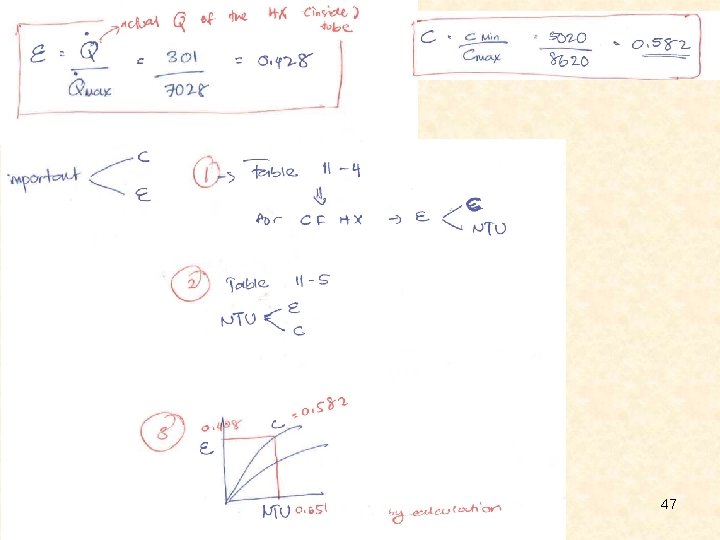 actual Q̇ of the HX (inside) tube
ε = Q̇ / Q̇max = 301 / 7028 = 0.428
C = C Min / Cmax = 5020 / 8620 = 0.582
important C
ε
1 -> Table 11-4
⇓
for CF HX → ε C
NTU
2 Table 11-5
NTU ε
C
3 0.408 C = 0.582
ε
NTU 0.651 by calculation
47